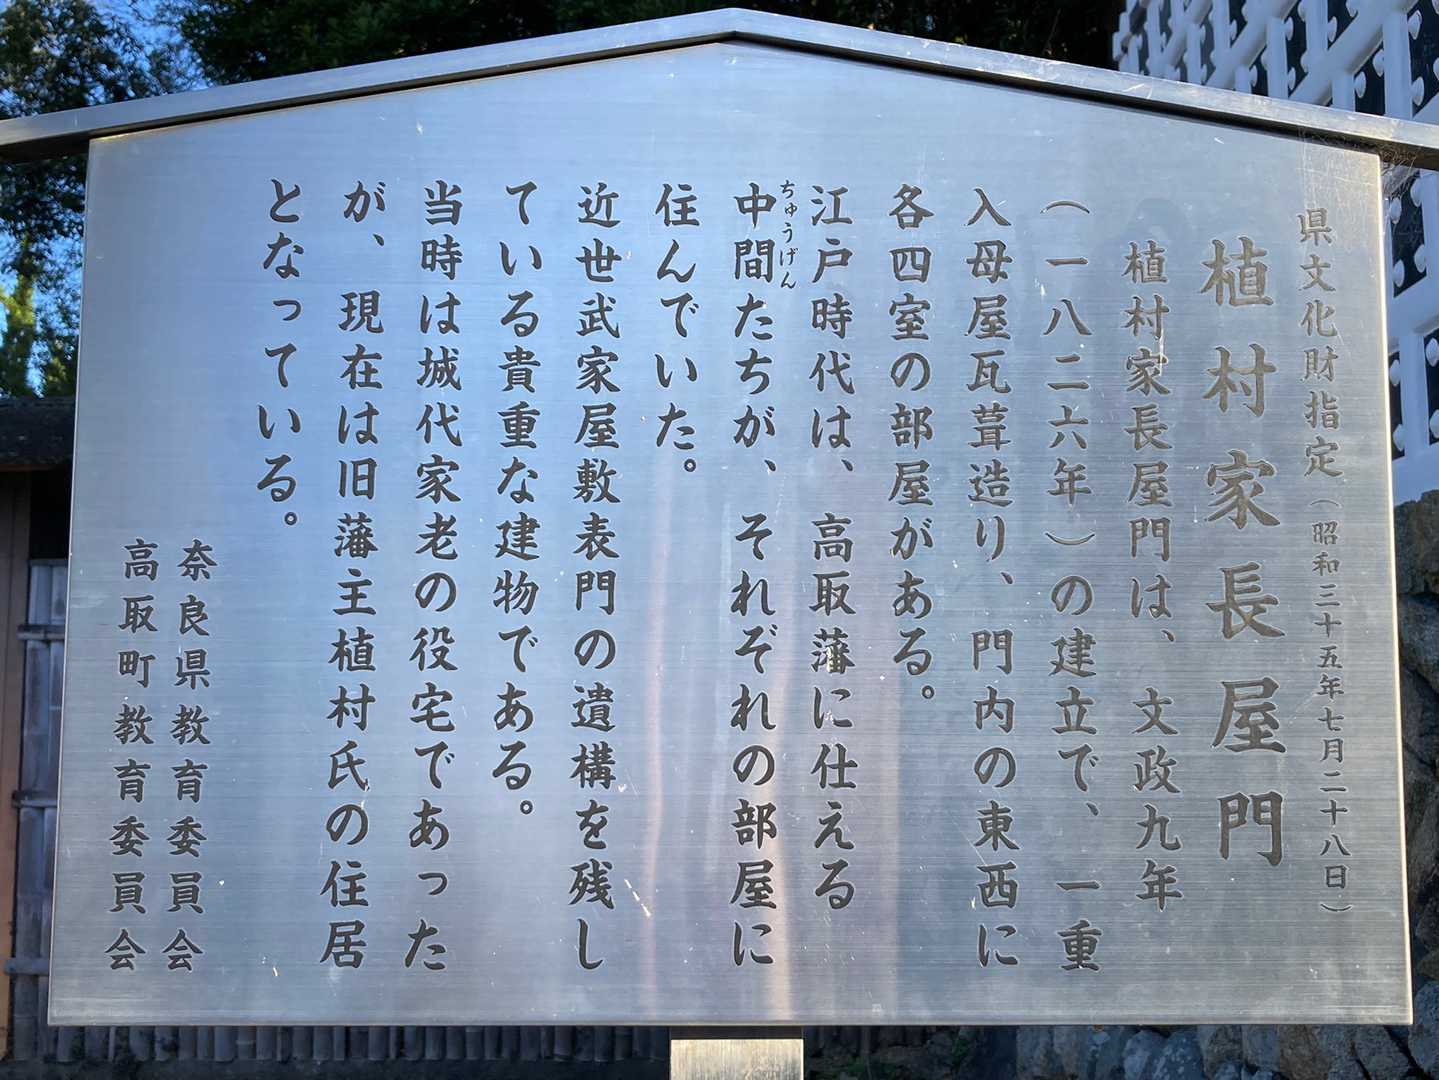 県文化財指定(昭和三十五年七月二十八日)
植村家長屋門
植村家長屋門は、文政九年
(一八二六年)の建立で、一重
入母屋瓦葺造り、門内の東西に
各四室の部屋がある。
江戸時代は、高取藩に仕える
ちゅうげん
中間たちが、それぞれの部屋に
住んでいた。
近世武家屋敷表門の遺構を残し
ている貴重な建物である。
当時は城代家老の役宅であった
が、現在は旧藩主植村氏の住居
となっている。
奈良県教育委員会
高取町教育委員会